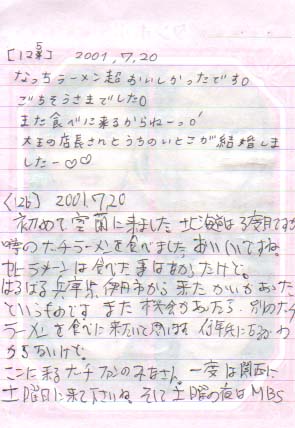 [125] 2001,7,20
なっちラーメン超おいしかったですo
ごちそうさまでしたo
また食べに来るからねーっo!
大王の店長されとうちのいとこが結婚しま
したー♡♡
〈126〉 2001,7,20
初めて室蘭に来ました。北海道は3度目ですが
噂のナッチラーメンを食べました。おいしいですね。
カレーラーメンは食べた事はあったけど。
はるばる兵庫県伊丹市から来たかいがあった
というものです。また機会があったら、別の
ラーメンを食べに来たいと思います。何年先になるかわ
からないけど。
ここに来るナッチファンのみなさん。一度は関西に
土曜日に来て下さいね。そして土曜の夜はMBS